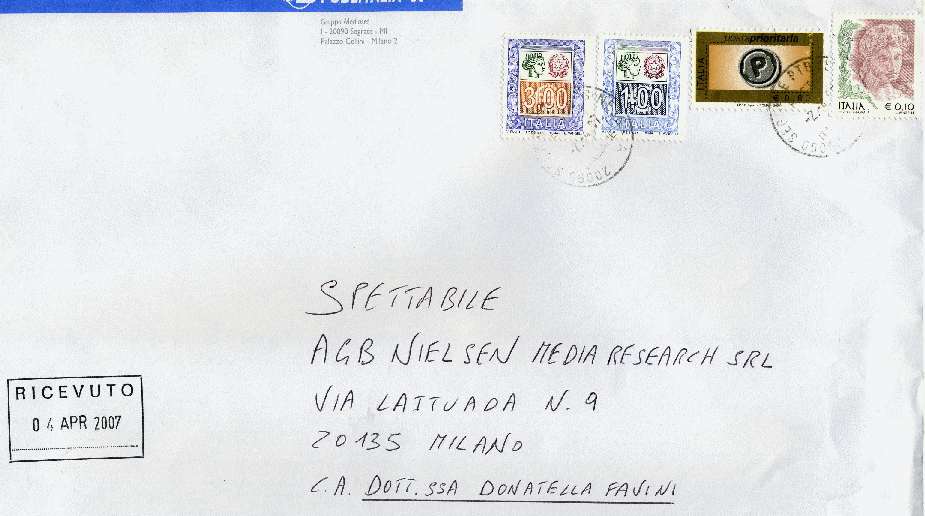 Gruppo Mediaset
I - 20090 Segrate - MI
Palazzo Cellini - Milano 2
3,00
ITALIA
1,00
ITALIA
postaprioritaria
ITALIA
P
ITALIA € 0,10
SPETTABILE
AGB NIELSEN MEDIA RESEARCH SRL
VIA LATTUADA N. 9
20135 MILANO
C.A. DOTT.SSA DONATELLA FAVINI
RICEVUTO
04 APR 2007